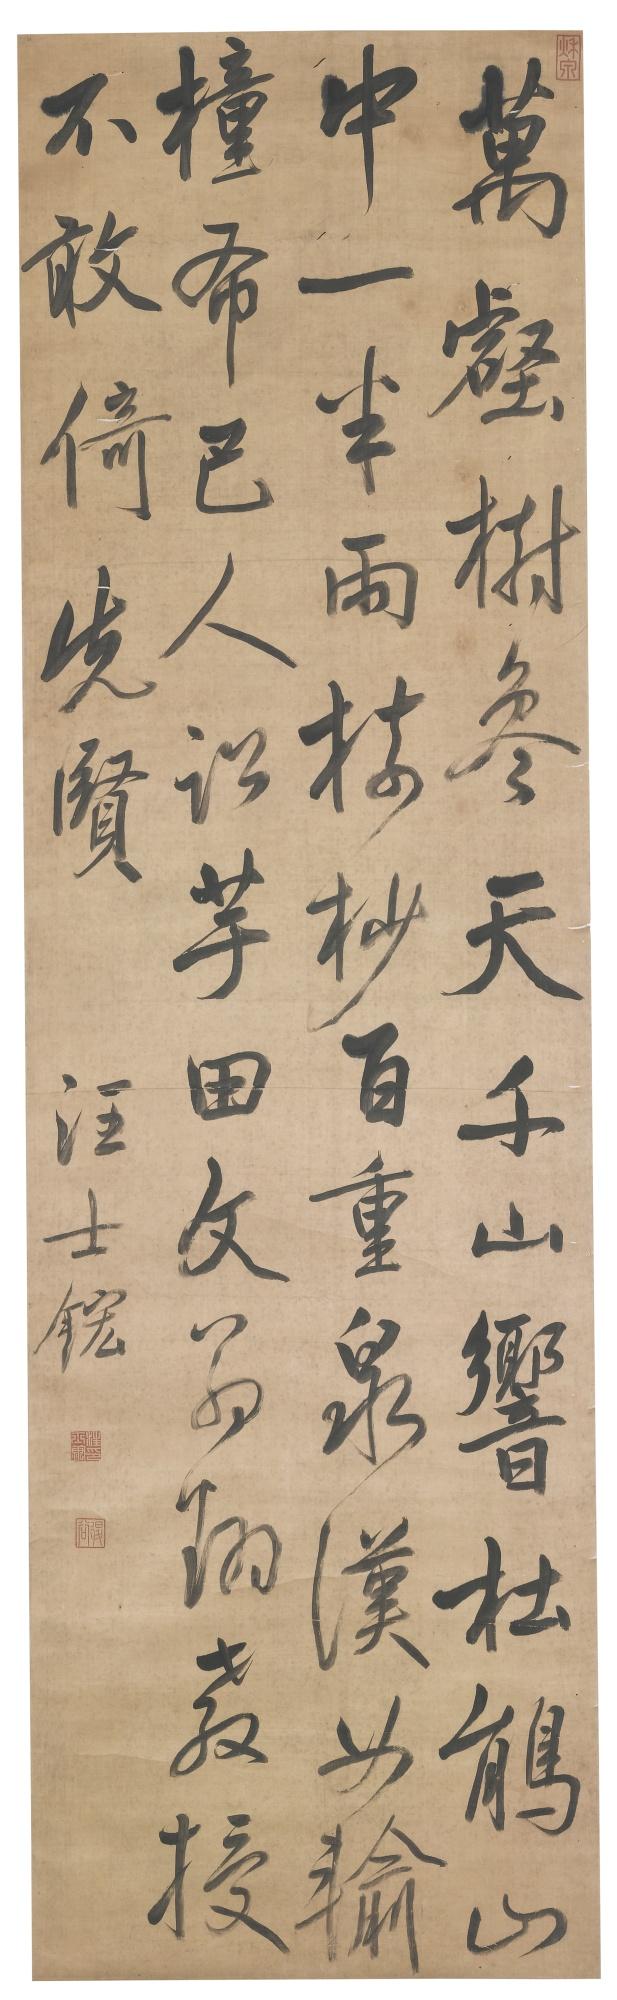 秋泉
萬壑樹參天千山響杜鵑山
中一半雨樹杪百重泉漢女輸
橦布巴人訟芋田文翁翻教授
不敢倚先賢
汪士鋐
退谷